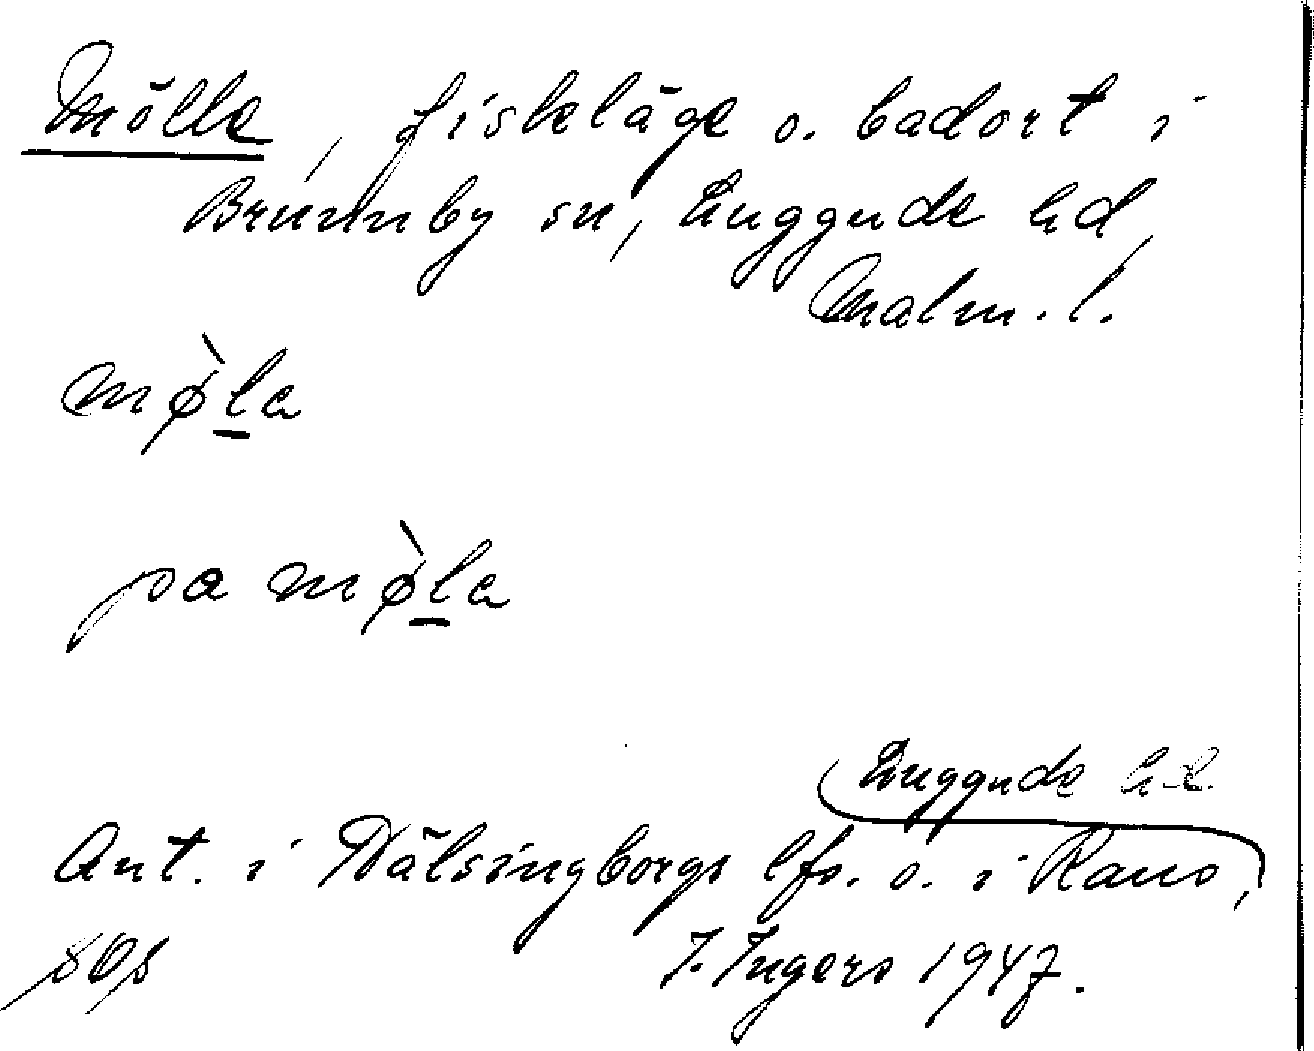 Mölle, fiskeläge o. badort i
Brunnby sn, Luggude hd,
Malm. l.
mø̀l̲a
pa mø̀l̲a
Luggude hd.
Ant. i Hälsingborgs lfs. o. i Raus,
I. Ingers 1947.